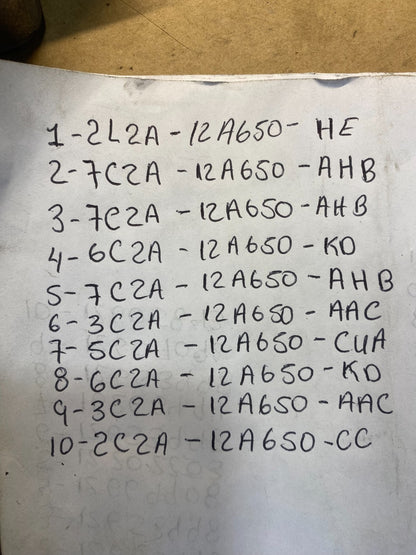 1-2L2A-12A650-HE
2-7C2A-12A650-AHB
3-7C2A-12A650-AHB
4-6C2A-12A650-KD
5-7C2A-12A650-AHB
6-3C2A-12A650-AAC
7-5C2A-12A650-CUA
8-6C2A-12A650-KD
9-3C2A-12A650-AAC
10-2C2A-12A650-CC